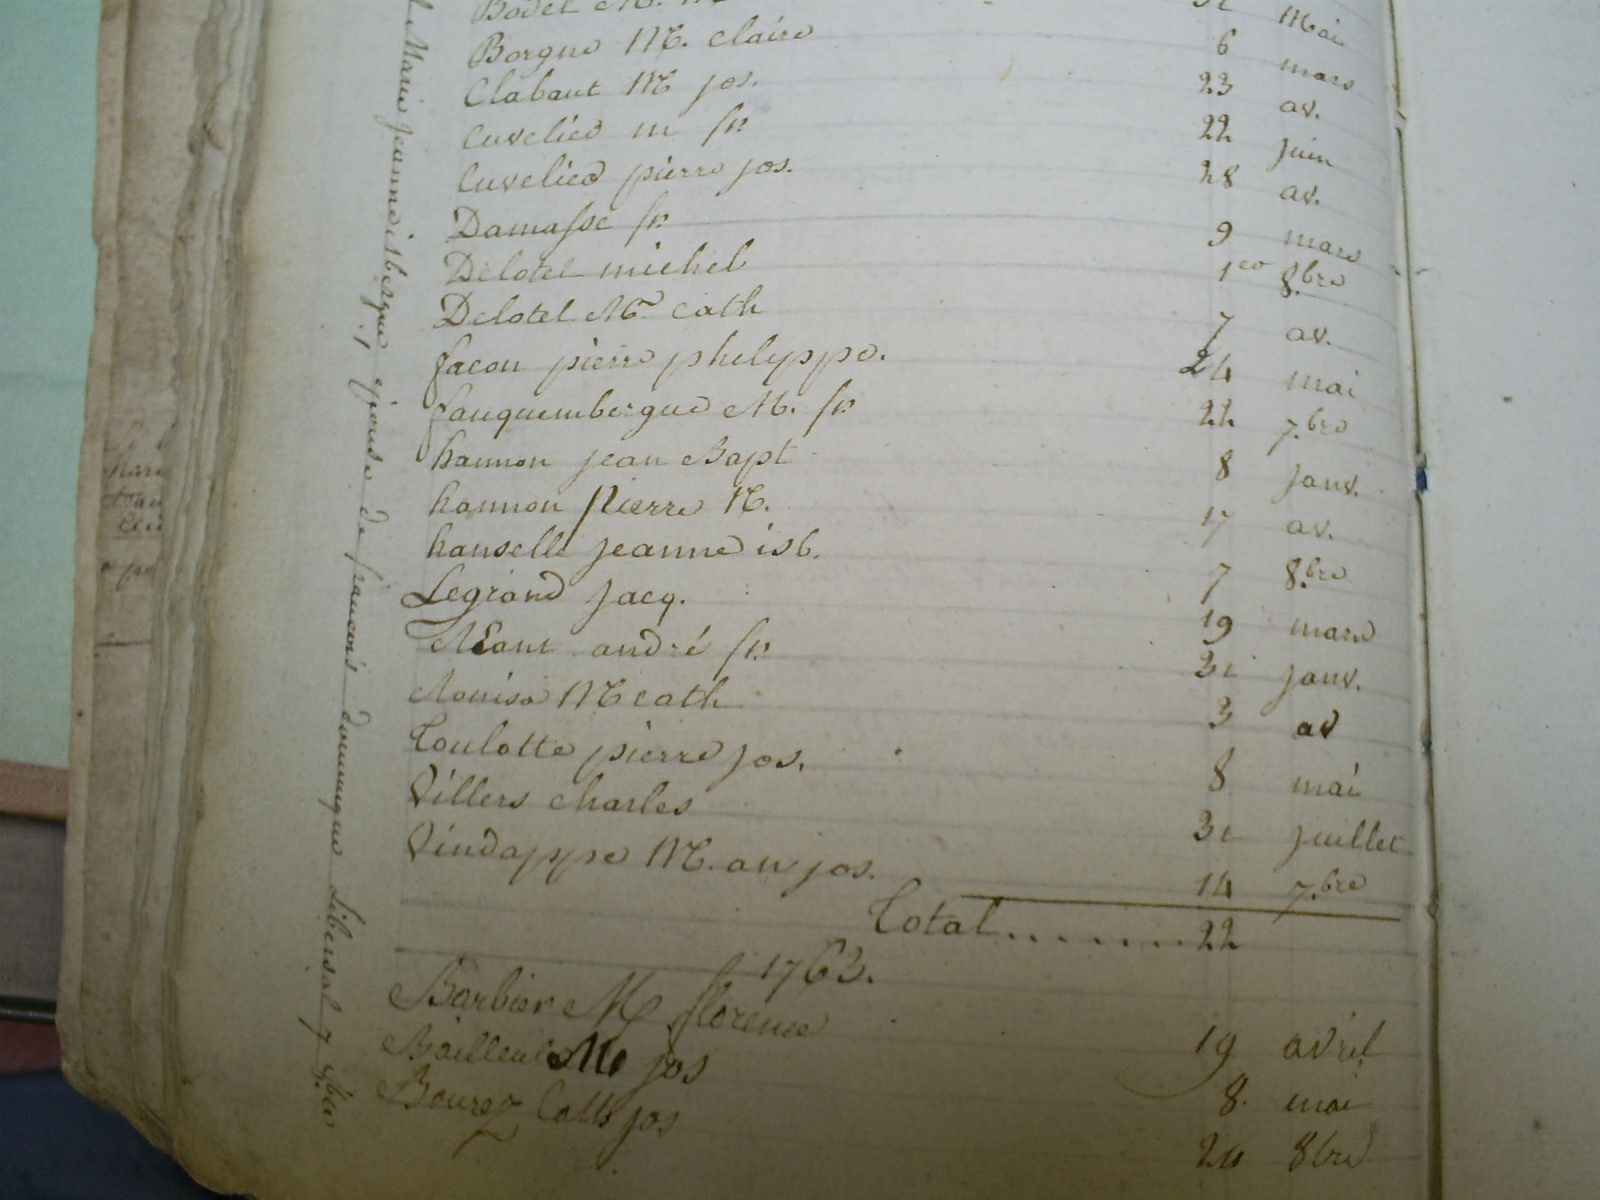 Bodel M. 31 Mai
Borgne M. Claire 6 mars
Clabaut M jos. 23 av.
Cuvelier m fr. 22 juin
Cuvelier pierre jos. 28 av.
Damasse fr. 9 mars
Delotel michel 1er 8.bre
Delotel M. Cath 7 av.
facon pierre phelyppe. 24 mai
fauquembergue M. fr. 22 7.bre
hannon jean Bapt 8 janv.
hannon Pierre M. 17 av.
hanselle jeanne isb. 7 8.bre
Legrand Jacq. 19 mars
andré fr. 31 janv.
M cath 3 av
Toulotte pierre jos. 8 mai
Villers charles 31 juillet
Vindappe M. an jos. 14 7.bre
Total......... 22
1763.
Barbier M florence 19 avril
Bailleul M jos 8. mai
Bourez Cath jos 24 8bre
Marie jeanne isbergue épouse de francois dominique Libersal 7 8.bre